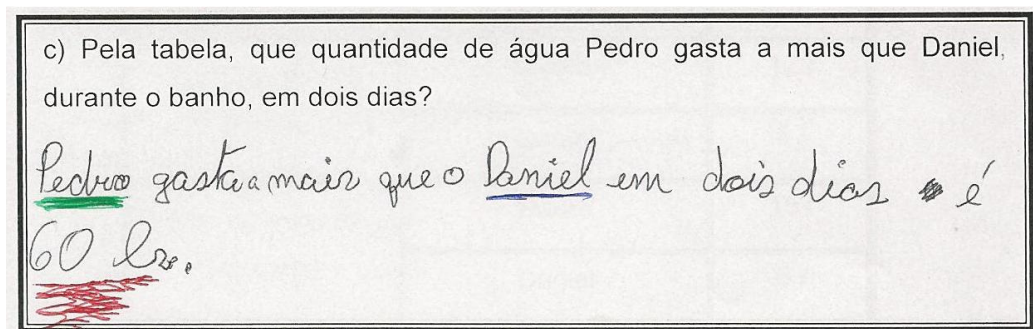 c) Pela tabela, que quantidade de água Pedro gasta a mais que Daniel,
durante o banho, em dois dias?
Pedro gasta a mais que o Daniel em dois dias é
60